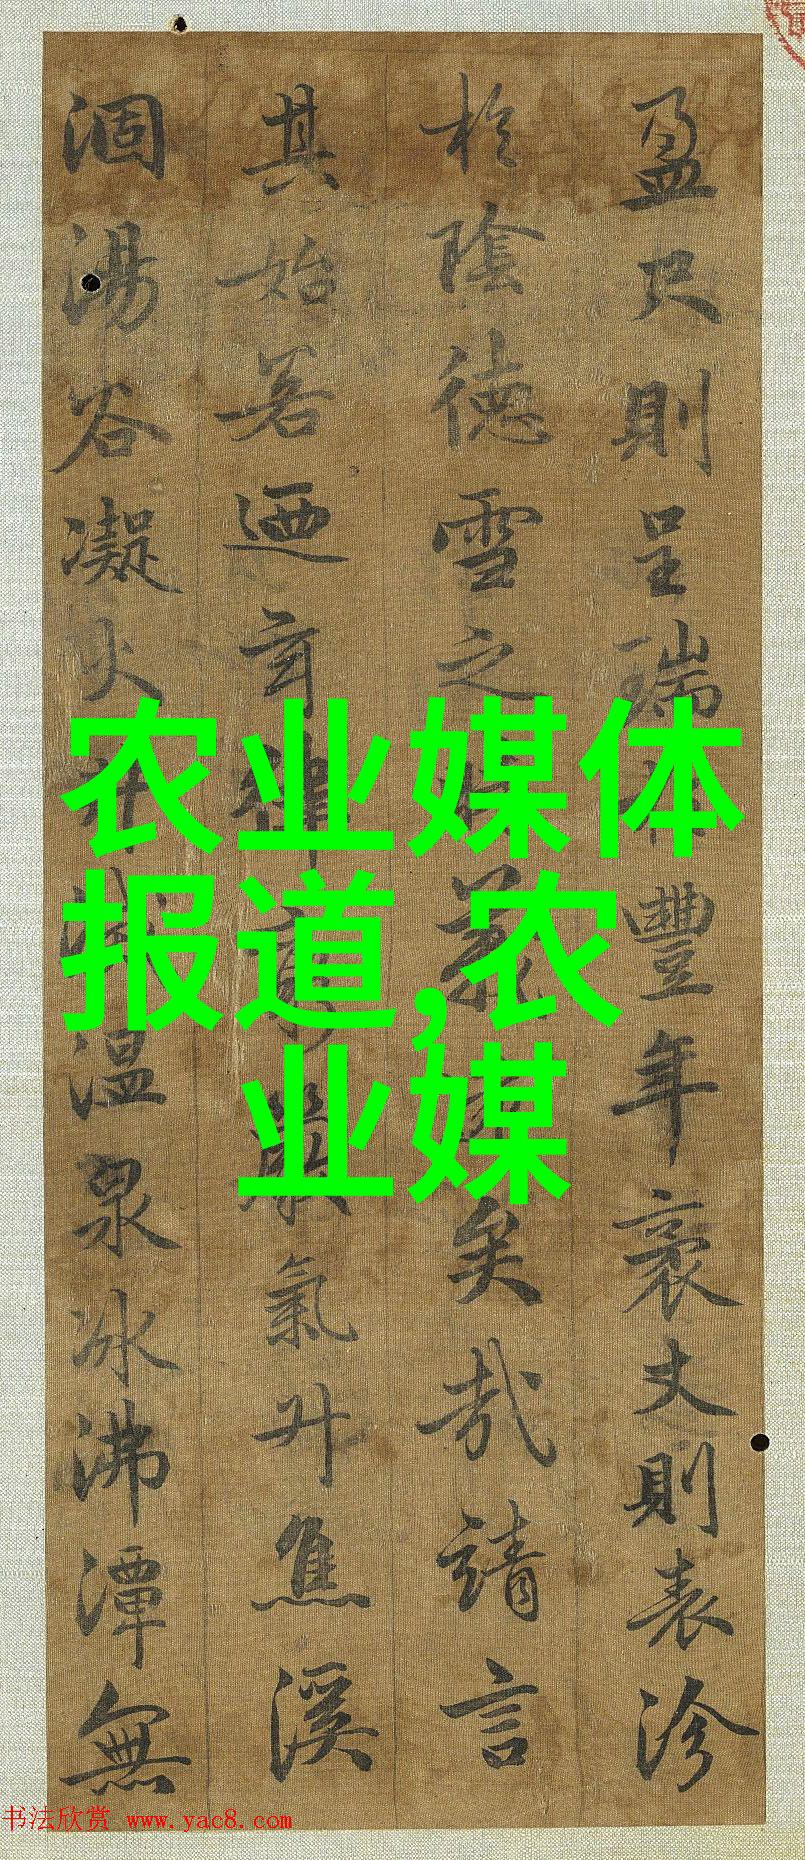 盈尺則呈瑞於豐年袤丈則表沴
於陰德雪之義矣哉請言
其始若迺玄律嚴氣升焦溪
涸湯谷凝火井滅温泉冰沸潭無
农业媒体
报道,农
业媒
书法欣赏 www.yac8.com